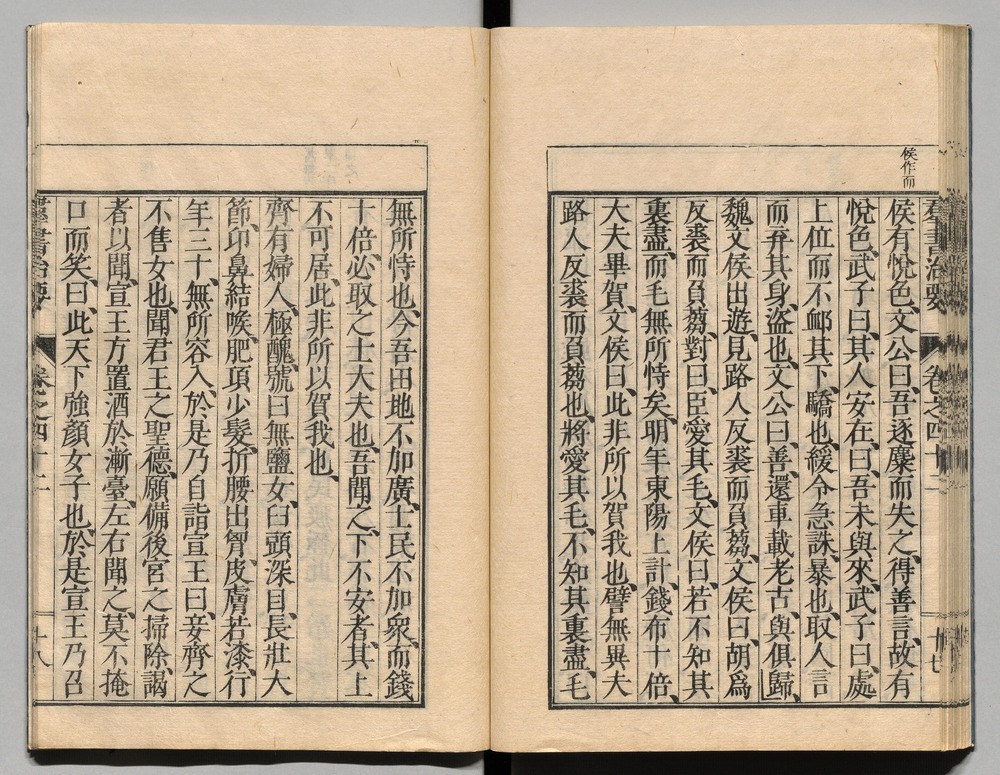 侯作而
群書治要 卷之四十二 十七
侯有悅色、文公曰、吾逐麋而失之、得善言、故有
悅色、武子曰、其人安在、曰、吾未與來、武子曰、處
上位而不䘏其下、驕也、緩令急誅、暴也、取人言
而弃其身、盜也、文公曰、善、還車載老古與俱歸、
魏文侯出遊、見路人反裘而負芻、文侯曰、胡爲
反裘而負芻、對曰、臣愛其毛、文侯曰、若不知其
裏盡、而毛無所恃矣、明年東陽上計、錢布十倍、
大夫畢賀、文侯曰、此非所以賀我也、譬無異夫
路人反裘而負芻也、將愛其毛、不知其裏盡、毛
無所恃也、今吾田地不加廣、士民不加衆、而錢
十倍、必取之士大夫也、吾聞之、下不安者、其上
不可居、此非所以賀我也、
齊有婦人、極醜、號曰無鹽女、臼頭深目、長壯大
節、卬鼻結喉、肥項少髮、折腰出胷、皮膚若漆、行
年三十、無所容入、於是乃自詣宣王曰、妾齊之
不售女也、聞君王之聖德、願備後宮之掃除、謁
者以聞、宣王方置酒於漸臺、左右聞之、莫不掩
口而笑、曰、此天下強顏女子也、於是宣王乃召
群書治要 卷之四十二 十八